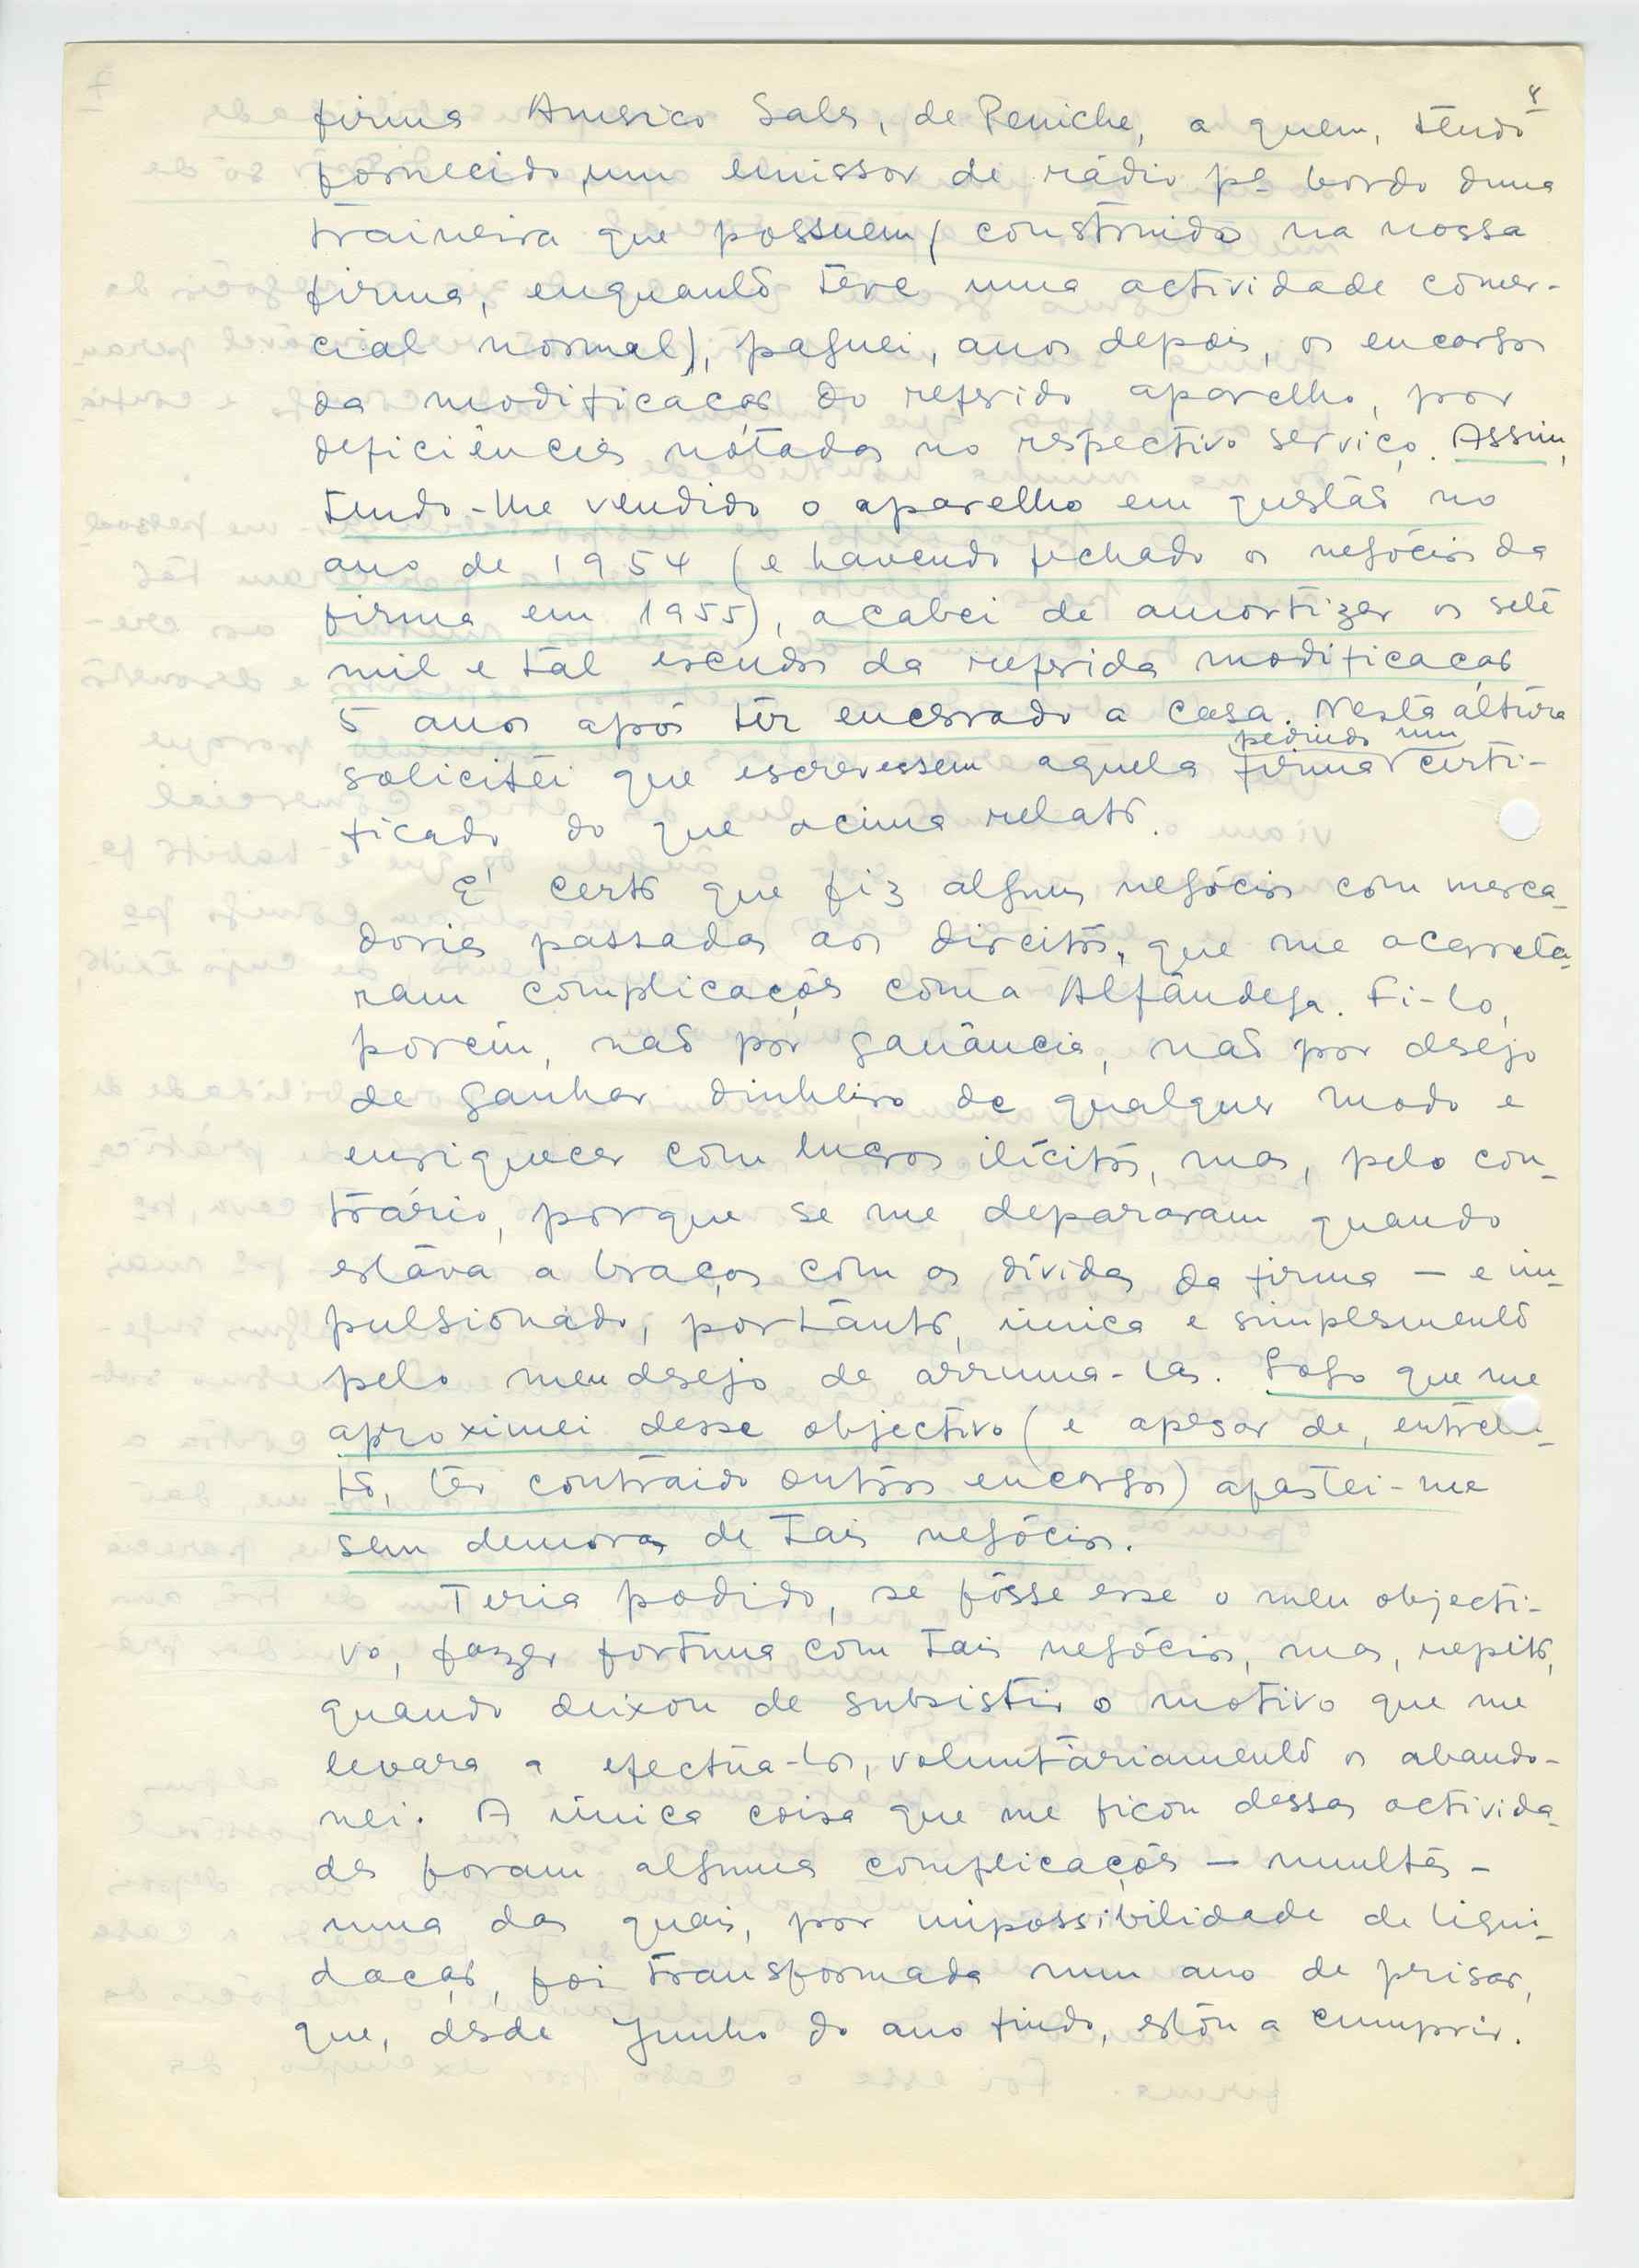 8
firma Americo Sales, de Peniche, a quem, tendo
fornecido um emissor de rádio pª bordo duma
traineira que possuem (construido na nossa
firma, enquanto teve uma actividade comer-
cial normal), paguei, anos depois, os encargos
da modificação do referido aparelho, por
deficiências notadas no respectivo serviço. Assim,
tendo-lhe vendido o aparelho em questão no
ano de 1954 (e havendo fechado os negócios da
firma em 1955), acabei de amortizar os sete
mil e tal escudos da referida modificação
5 anos após ter encerrado a casa. Nesta altura
pedindo um
solicitei que escrevessem aquela firma certi-
ficado do que acima relato.
É certo que fiz alguns negócios com merca-
dorias passadas aos direitos, que me acarreta-
ram complicações com a Alfândega. Fi-lo,
porém, não por ganância, não por desejo
de ganhar dinheiro de qualquer modo e
enriquecer com lucros ilícitos, mas, pelo con-
trário, porque se me depararam quando
estava a braços com as dívidas da firma — e im-
pulsionado, portanto, única e simplesmente
pelo meu desejo de arruma-las. Logo que me
aproximei desse objectivo (e apesar de, entretan-
to, ter contraido outros encargos) afastei-me
sem demoras de tais negócios.
Teria podido, se fôsse esse o meu objecti-
vo, fazer fortuna com tais negócios, mas, repito,
quando deixou de subsistir o motivo que me
levara a efectua-los, voluntáriamente os abando-
nei. A única coisa que me ficou dessas activida-
des foram algumas complicações — multas —
uma das quais, por impossibilidade de liqui-
dação, foi transformada num ano de prisão,
que, desde Junho do ano findo, estou a cumprir.